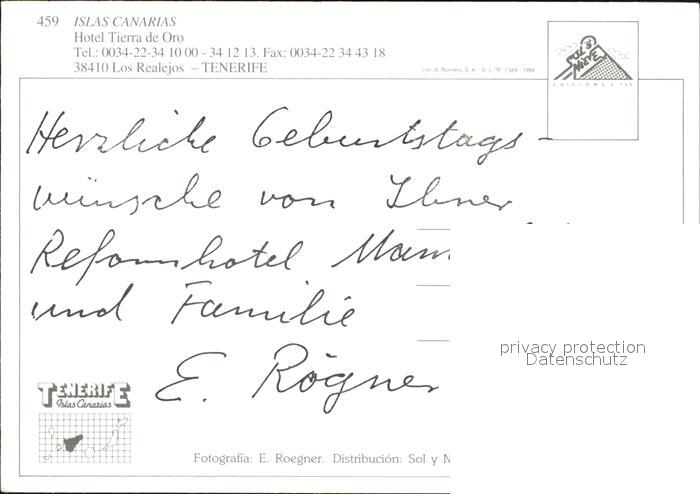 459 ISLAS CANARIAS
Hotel Tierra de Oro
Tel.: 0034-22-34 10 00 - 34 12 13. Fax: 0034-22 34 43 18
38410 Los Realejos – TENERIFE
Lito. A. Romero, S. A. - D. L. TF. 1.584 - 1994
SOL Y NIEVE
EDICIONES
Herzliche Geburtstags-
wünsche von Ihrer
Reformhotel Mam
und Familie
E. Rögner
privacy protection
Datenschutz
TENERIFE
Islas Canarias
Fotografía: E. Roegner. Distribución: Sol y N